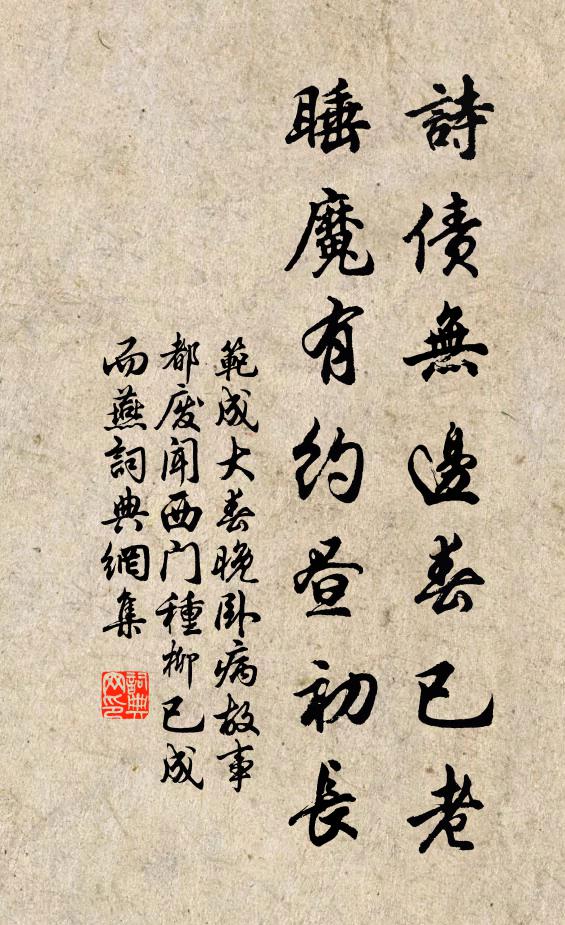 詩債無邊春已老
睡魔有約晝初長
範成大春晚卧病故事
都废闻西门種柳已成
而燕詞典網集
詞典
网印